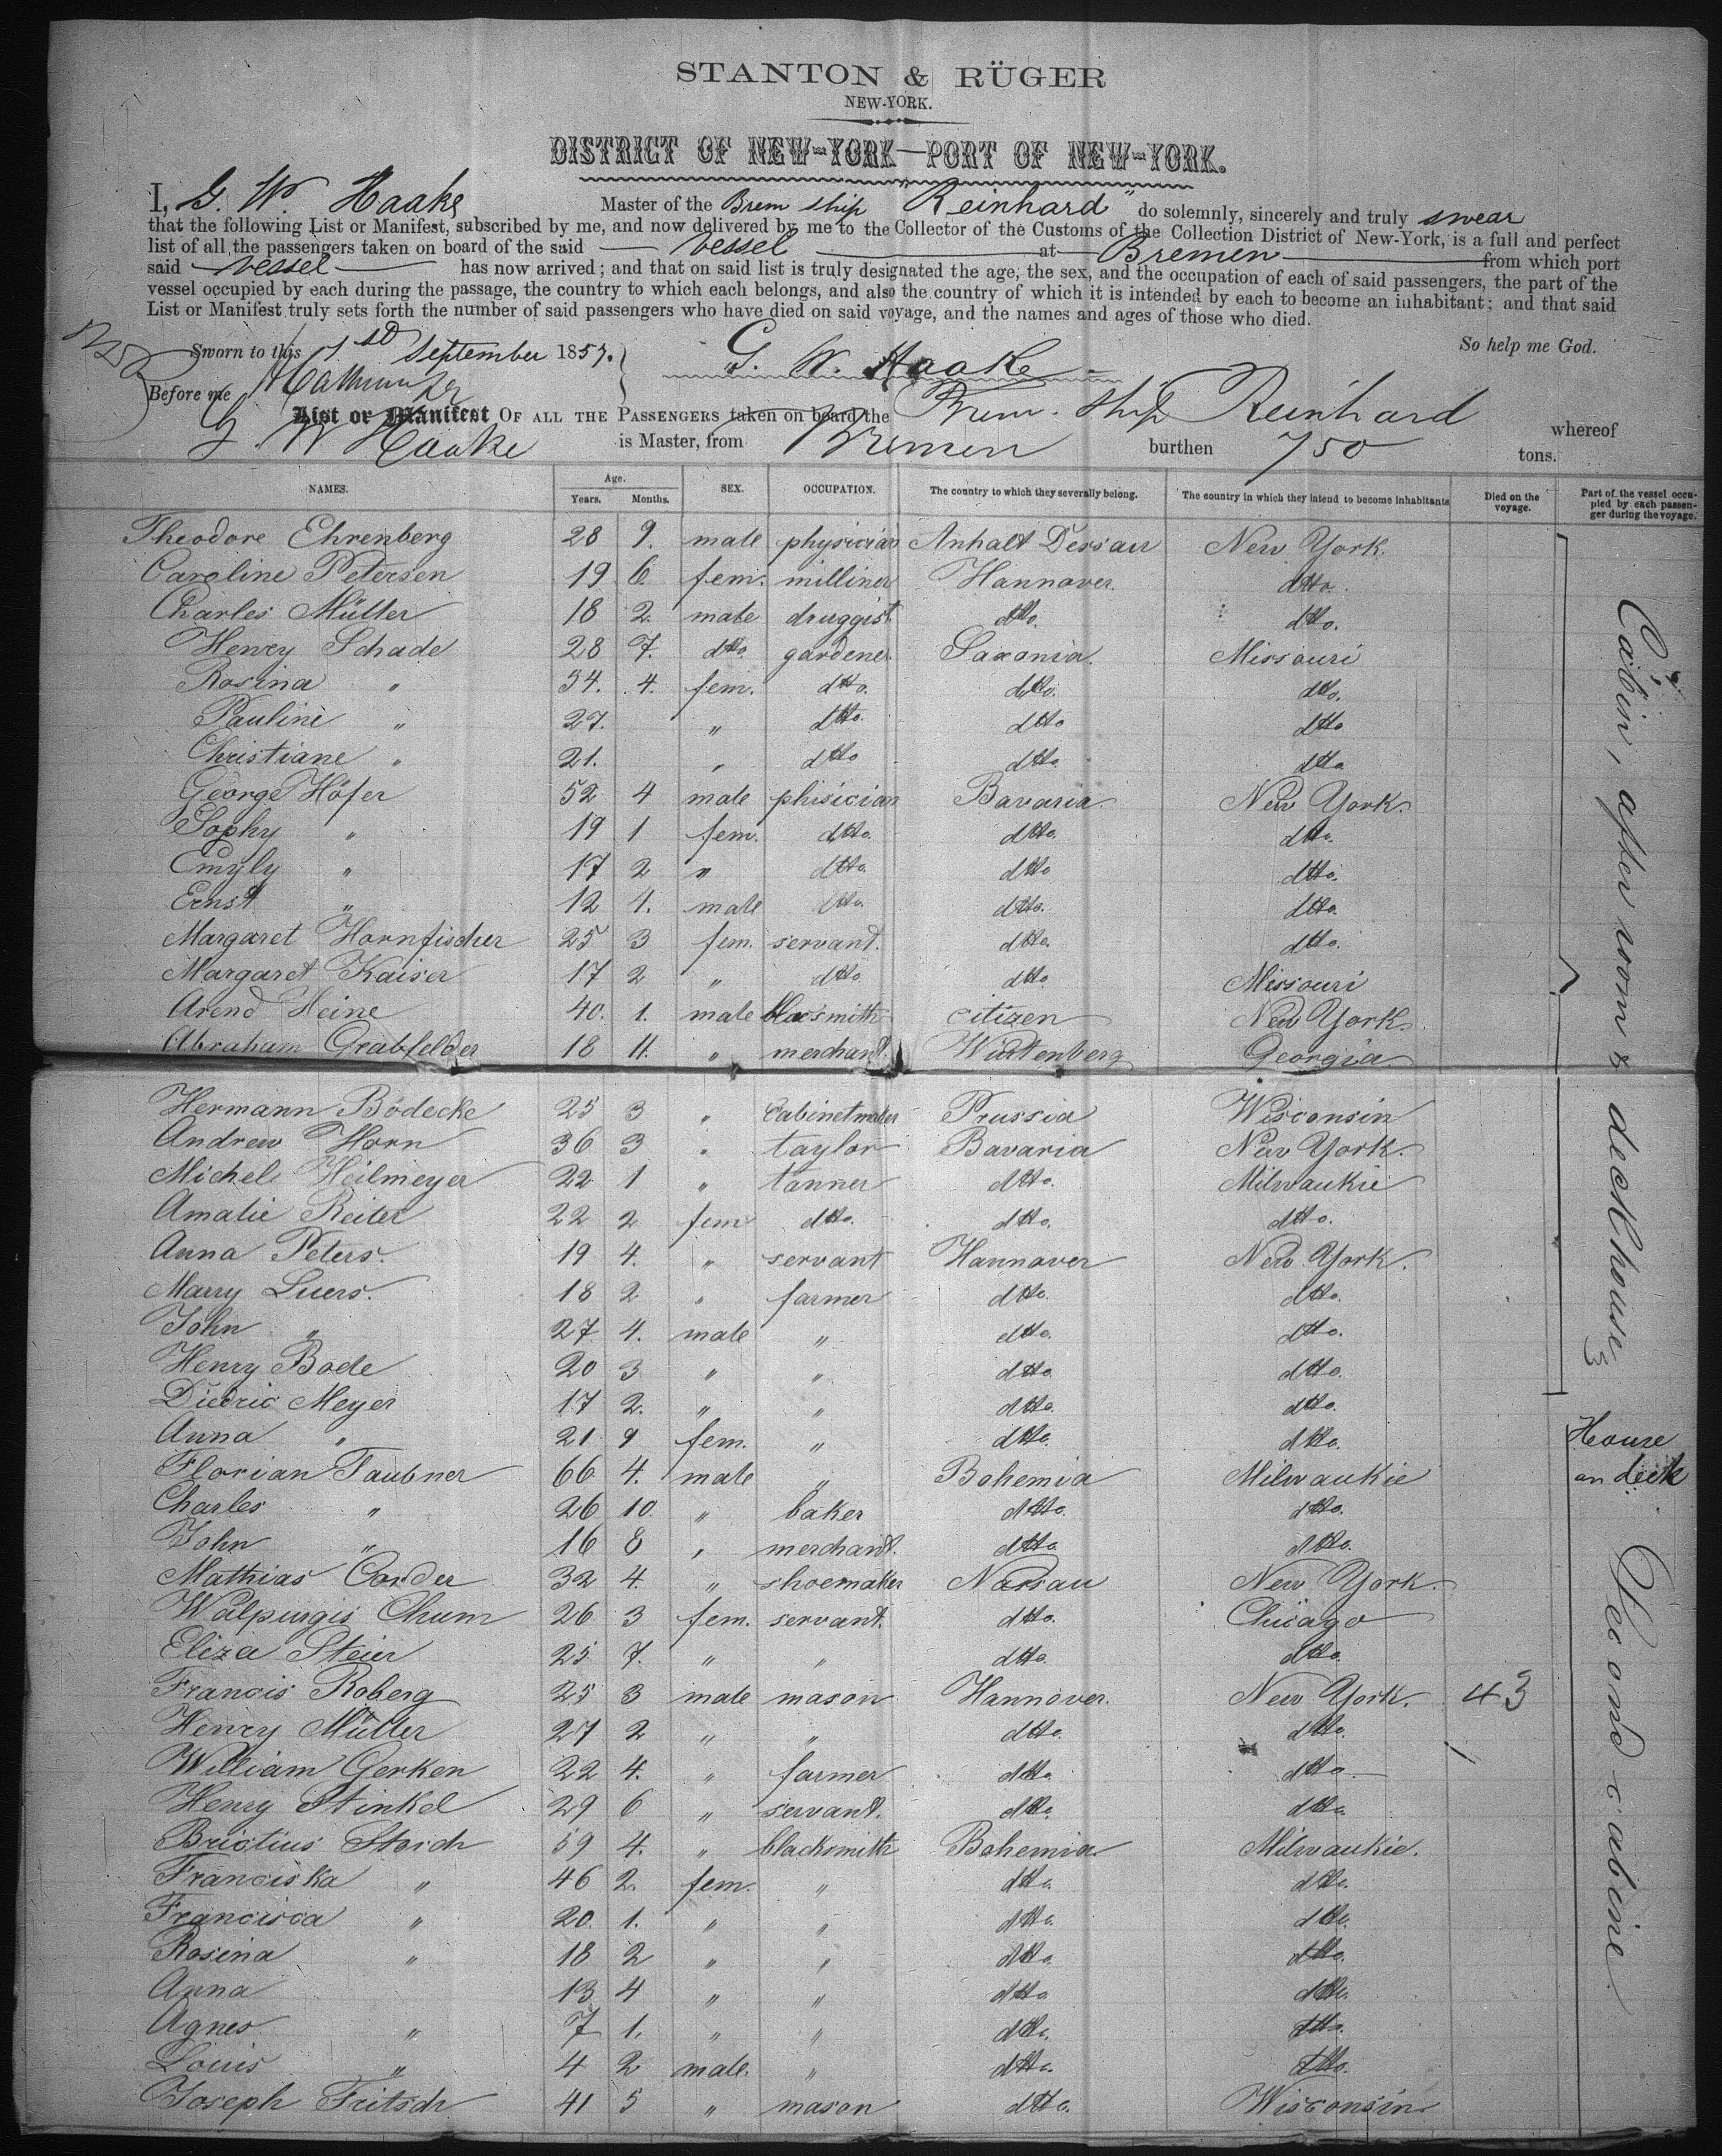 STANTON & RÜGER
NEW-YORK.
DISTRICT OF NEW-YORK—PORT OF NEW-YORK.
I, G. W. Haake Master of the Brem ship "Reinhard" do solemnly, sincerely and truly swear
that the following List or Manifest, subscribed by me, and now delivered by me to the Collector of the Customs of the Collection District of New-York, is a full and perfect
list of all the passengers taken on board of the said vessel at Bremen from which port
said vessel has now arrived; and that on said list is truly designated the age, the sex, and the occupation of each of said passengers, the part of the
vessel occupied by each during the passage, the country to which each belongs, and also the country of which it is intended by each to become an inhabitant; and that said
List or Manifest truly sets forth the number of said passengers who have died on said voyage, and the names and ages of those who died.
So help me God.
Sworn to this 1st September 1857.
G. W. Haake
Before me
List or Manifest OF ALL THE PASSENGERS taken on board the Brem. ship Reinhard whereof
G W Haake is Master, from Bremen burthen 750 tons.
NAMES. Age. Years. Months. SEX. OCCUPATION. The country to which they severally belong. The country in which they intend to become inhabitants Died on the voyage. Part of the vessel occupied by each passenger during the voyage.
Theodore Ehrenberg 28 9. male physician Anhalt Dessau New York.
Caroline Petersen 19 6 fem. milliner Hannover. dtto.
Charles Müller 18 2 male druggist dtto. dtto.
Henry Schade 28 7. dtto. gardener Saxonia. Missouri
Rosina " 34. 4. fem. dtto. dtto. dtto.
Pauline " 27. " dtto. dtto dtto
Christiane " 21. " dtto dtto dtto
George Höfer 52 4 male phisician Bavaria New York.
Sophy " 19 1 fem. dtto. dtto. dtto.
Emyly " 17 2 " dtto. dtto dtto.
Ernst " 12 1. male dtto. dtto. dtto.
Margaret Hornfischer 25 3 fem. servant. dtto. dtto.
Margaret Kaiser 17 2 " dtto. dtto Missouri
Arend Heine 40. 1. male blacsmith citizen New York.
Abraham Grabfelder 18 11. " merchant. Würtenberg Georgia
Hermann Bödecke 25 3 " Cabinetmaker Prussia Wisconsin
Andrew Horn 36 3 " taylor Bavaria New York.
Michel Heilmeyer 22 1 " tanner dtto. Milwaukie
Amalie Reiter 22 2 fem dtto. dtto. dtto.
Anna Peters. 19 4. " servant Hannover New York.
Marry Luers. 18 2 " farmer dtto. dtto.
John " 27 4. male " dtto. dtto.
Henry Bode 20 3 " " dtto. dtto.
Diedric Meyer 17 2. " " dtto. dtto.
Anna " 21 9 fem. " dtto. dtto.
Florian Taubner 66 4. male " Bohemia Milwaukie
Charles " 26 10. " baker dtto. dtto.
John " 16 8 " merchant. dtto dtto.
Mathias Conder 32 4. " shoemaker Nassau New York.
Walpurgis Chum 26 3 fem. servant. dtto. Chicago
Eliza Steier 25 7. " " dtto. dtto.
Francis Roberg 25 3 male mason Hannover. New York. 43
Henry Müller 27 2 " " dtto. dtto.
William Gerken 22 4. " farmer dtto. dtto.
Henry Stinkel 29 6 " servant. dtto. dtto.
Brictius Storch 59 4. " blacksmith Bohemia Milwaukie.
Franciska " 46 2. fem. " dtto. dtto.
Francisca " 20. 1. " " dtto. dtto.
Rosina " 18 2 " " dtto. dtto.
Anna 13 4 " " dtto dtto.
Agnes " 7 1. " " dtto. dtto.
Louis " 4 2 male. " dtto. dtto.
Joseph Fritsch 41 5 " mason dtto. Wisconsin
Cabin, after room & deckhouse
House on deck
Second cabine.